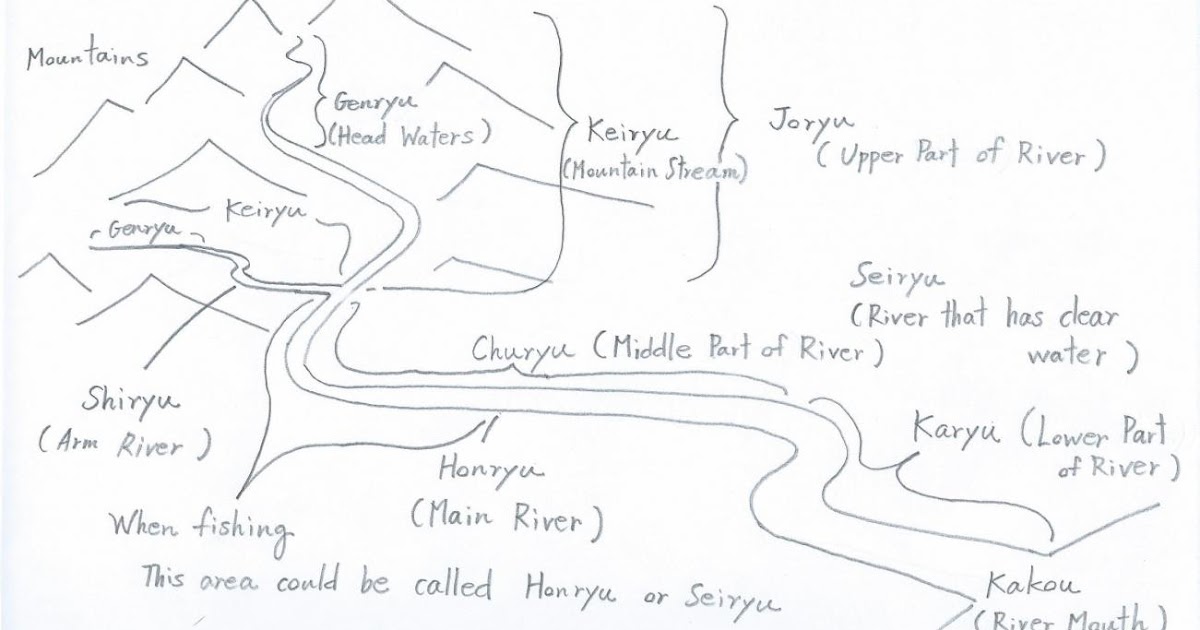 Mountains
Genryu
(Head Waters)
Keiryu
(Mountain Stream)
Joryu
(Upper Part of River)
Keiryu
Genryu
Seiryu
(River that has clear
water)
Churyu (Middle Part of River)
Shiryu
(Arm River)
Karyu (Lower Part
of River)
Honryu
(Main River)
When fishing
This area could be called Honryu or Seiryu
Kakou
(River Mouth)